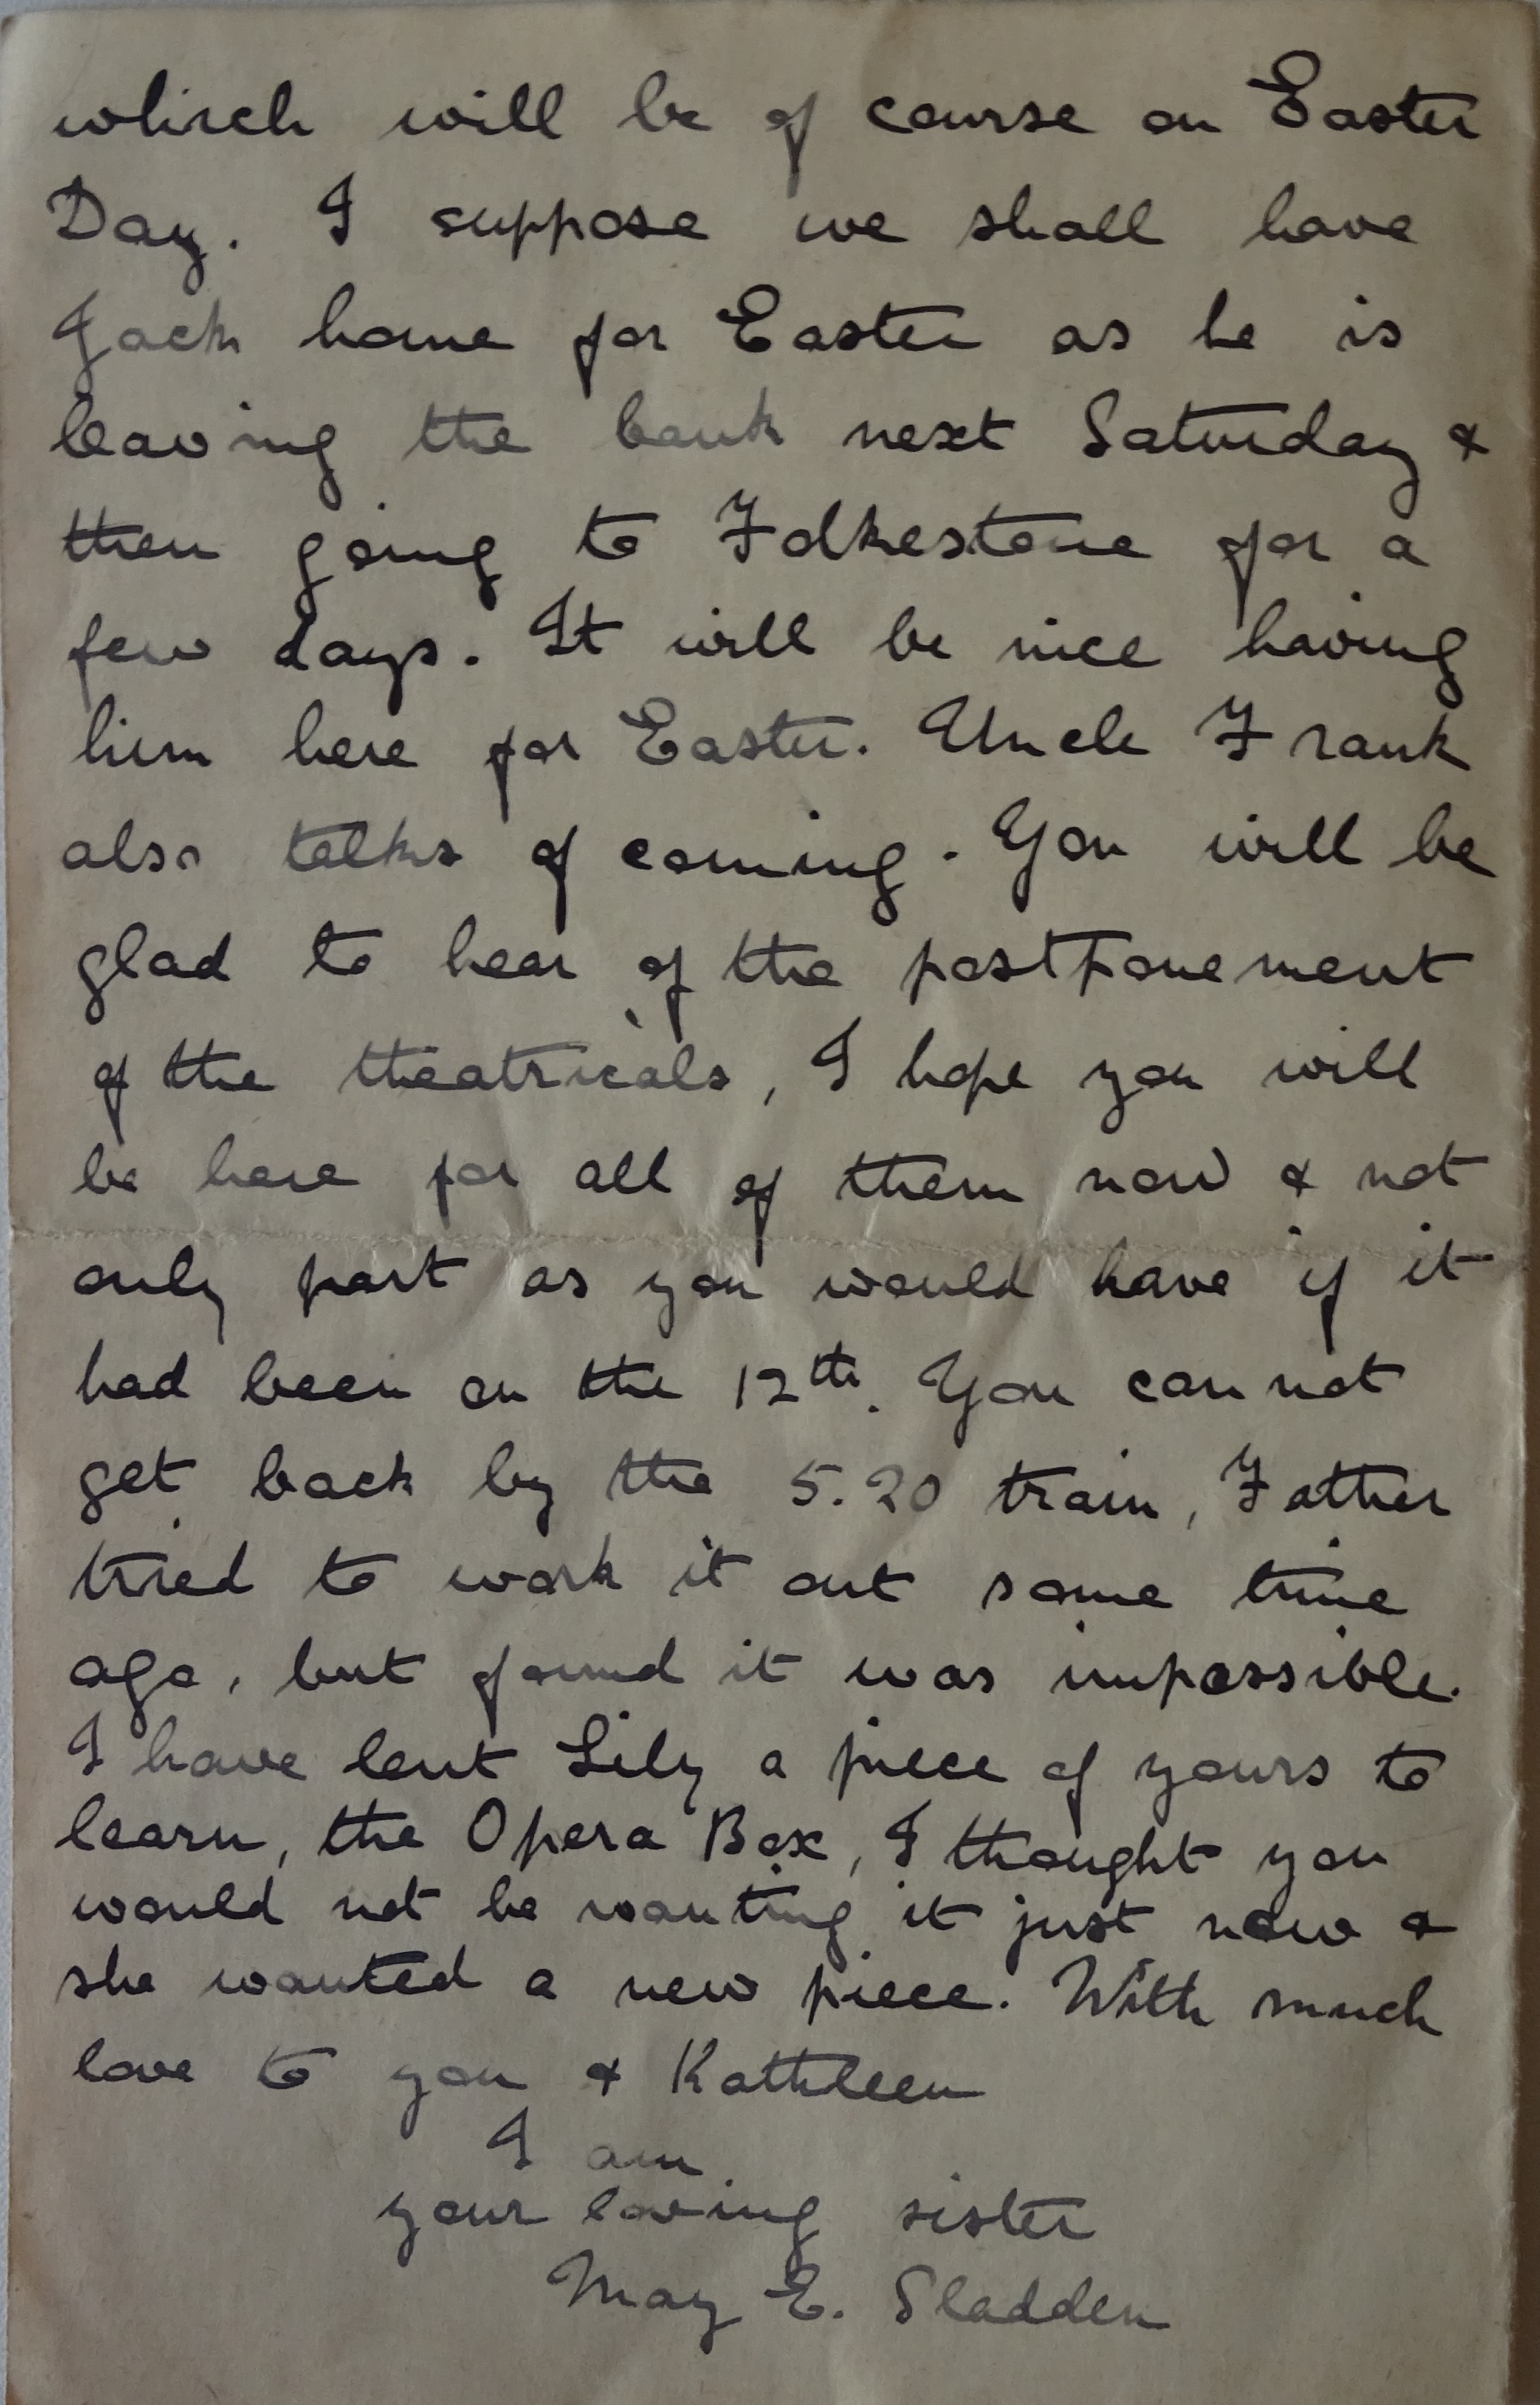 which will be of course on Easter
Day. I suppose we shall have
Jack home for Easter as he is
leaving the bank next Saturday &
then going to Folkestone for a
few days. It will be nice having
him here for Easter. Uncle Frank
also talks of coming. You will be
glad to hear of the postponement
of the theatricals, I hope you will
be here for all of them now & not
only part as you would have if it
had been on the 12th. You cannot
get back by the 5.20 train, Father
tried to work it out some time
ago, but found it was impossible.
I have lent Lily a piece of yours to
learn, the Opera Box, I thought you
would not be wanting it just now &
she wanted a new piece. With much
love to you & Kathleen
I am
your loving sister
May E. Sladden